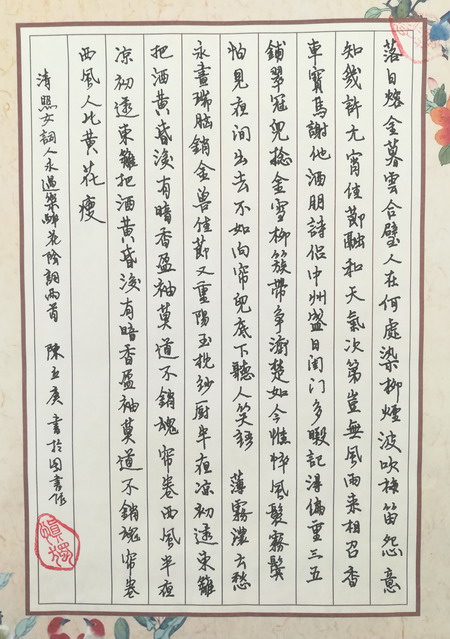 落日熔金暮雲合璧人在何處染柳煙波吹梅笛怨意
知幾許元宵佳節融和天氣次第豈無風雨來相召香
車寶馬謝他酒朋詩侶中州盛日闺门多暇記得偏重三五
鋪翠冠兒捻金雪柳簇帶爭濟楚如今憔悴風鬟霧鬢
怕見夜間出去不如向帘兒底下聽人笑語 薄霧濃云愁
永晝瑞腦銷金獸佳節又重陽玉枕紗厨半夜凉初透東籬
把酒黄昏後有暗香盈袖莫道不銷魂帘卷西風半夜
凉初透東籬把酒黄昏後有暗香盈袖莫道不銷魂帘卷
西風人比黄花瘦
清照女詞人永遇樂醉花陰詞兩首 陳立 書於